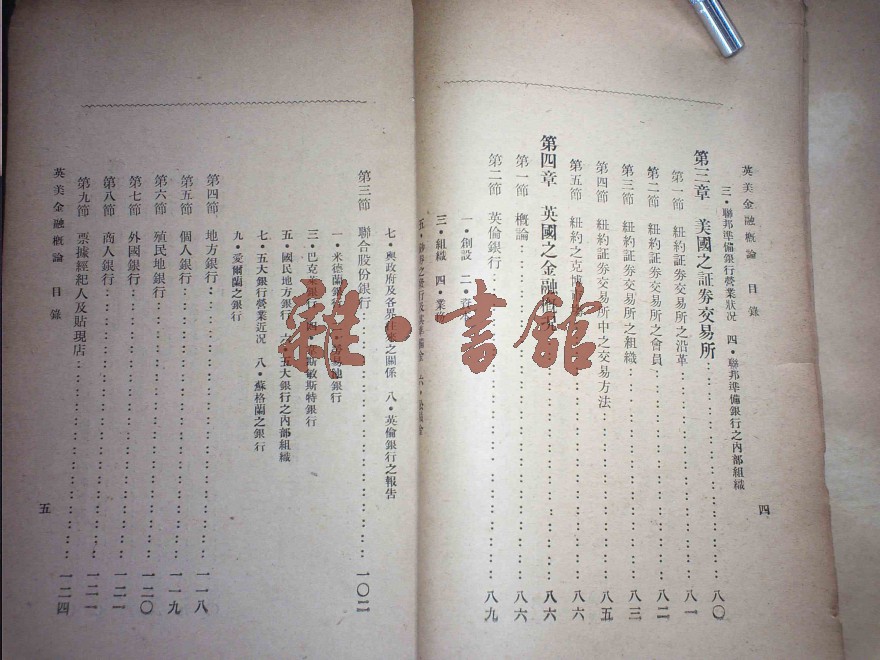 英美金融概論 目錄
三・聯邦準備銀行營業狀况 四・聯邦準備銀行之內部組織
第三章 美國之証券交易所 八〇
第一節 紐約証券交易所之沿革 八一
第二節 紐約証券交易所之會員 八二
第三節 紐約証券交易所之組織 八三
第四節 紐約証券交易所中之交易方法 八五
第五節 紐約之克博 八六
第四章 英國之金融 八六
第一節 概論 八六
第二節 英倫銀行 八九
一・創設 二・資
三・組織 四・業
四
七・與政府及各界 之關係 八・英倫銀行之報告
第三節 聯合股份銀行 一〇二
一・米德蘭銀行 銀行
三・巴克萊銀行 四・ 斯敏斯特銀行
五・國民地方銀行 六・五大銀行之內部組織
七・五大銀行營業近况 八・蘇格蘭之銀行
九・愛爾蘭之銀行
第四節 地方銀行 一一八
第五節 個人銀行 一一九
第六節 殖民地銀行 一二〇
第七節 外國銀行 一二〇
第八節 商人銀行 一二一
第九節 票據經紀人及貼現店 一二四
英美金融概論 目錄
五
雜・書館